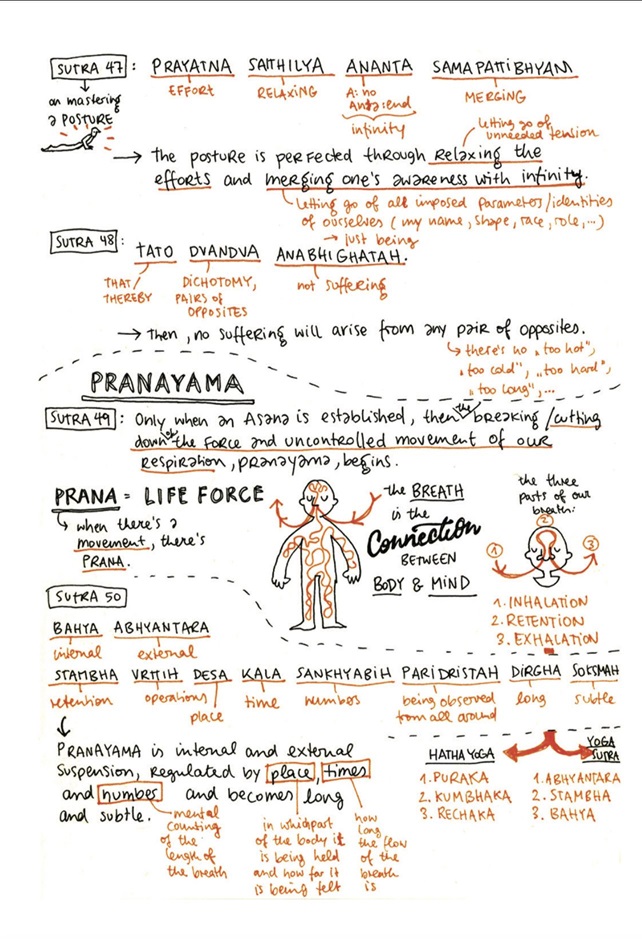 SUTRA 47 : PRAYATNA SAITHILYA ANANTA SAMAPATTIBHYAM
EFFORT RELAXING A: no MERGING
Anta: end
infinity
on mastering
a POSTURE
letting go of
unneeded tension
→ The posture is perfected through relaxing the
efforts and merging one's awareness with infinity.
letting go of all imposed parameters/identities
of ourselves (my name, shape, race, role,...)
→ just being
SUTRA 48 : TATO DVANDVA ANABHIGHATAH.
THAT/ DICHOTOMY, not suffering
THEREBY PAIRS OF
OPPOSITES
→ Then, no suffering will arise from any pair of opposites.
there's no „too hot",
„too cold", „too hard",
„too long",...
PRANAYAMA
SUTRA 49 : Only when an Asana is established, then the breaking/cutting
down of the force and uncontrolled movement of our
respiration, pranayama, begins.
PRANA = LIFE FORCE
when there's a
movement, there's
PRANA.
the BREATH
is the
Connection
BETWEEN
BODY & MIND
the three
parts of our
breath:
1 2 3
1. INHALATION
2. RETENTION
3. EXHALATION
SUTRA 50
BAHYA ABHYANTARA
internal external
STAMBHA VRTTIH DESA KALA SANKHYABIH PARIDRISTAH DIRGHA SOKSMAH
retention operations place time numbers being observed long subtle
from all around
PRANAYAMA is internal and external
suspension, regulated by place, times
and number and becomes long
and subtle.
mental
counting
of the
length of
the breath
in which part
of the body it
is being held
and how far it
is being felt
how
long
the flow
of the
breath
is
HATHA YOGA
1. PURAKA
2. KUMBHAKA
3. RECHAKA
YOGA
SUTRA
1. ABHYANTARA
2. STAMBHA
3. BAHYA